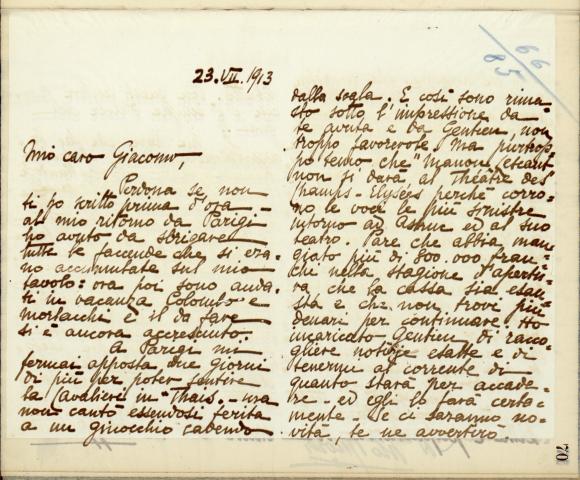 66
85
23.VII.1913
Mio caro Giacomo,
Perdona se non
ti ho scritto prima d'ora –
al mio ritorno da Parigi
ho avuto da sbrigare
tutte le faccende che si era-
no accumulate sul mio
tavolo: ora poi sono anda-
ti in vacanza Colombo e
Morlacchi e il da fare
si è ancora accresciuto.
A Parigi mi
fermai apposta due giorni
di più per poter sentire
la Cavalieri in "Thais" – ma
non cantò essendosi ferita
a un ginocchio cadendo
dalla scala. E così sono rima-
sto sotto l'impressione da
te avuta e da Gentien, non
troppo favorevole. Ma purtrop-
po temo che "Manon Lescaut"
non si darà al Théâtre des
Champs-Elysées perchè corro-
no le voci le più sinistre
intorno ad Astruc ed al suo
teatro. Pare che abbia man-
giato più di 800.000 fran-
chi nella stagione d'apertu-
ra, che la cassa sia esau-
sta e che non trovi più
denari per continuare. Ho
incaricato Gentien di racco-
gliere notizie esatte e di
tenermi al corrente di
quanto starà per accade-
re – ed egli lo farà certa-
mente – Se ci saranno no-
vità, te ne avvertirò
70